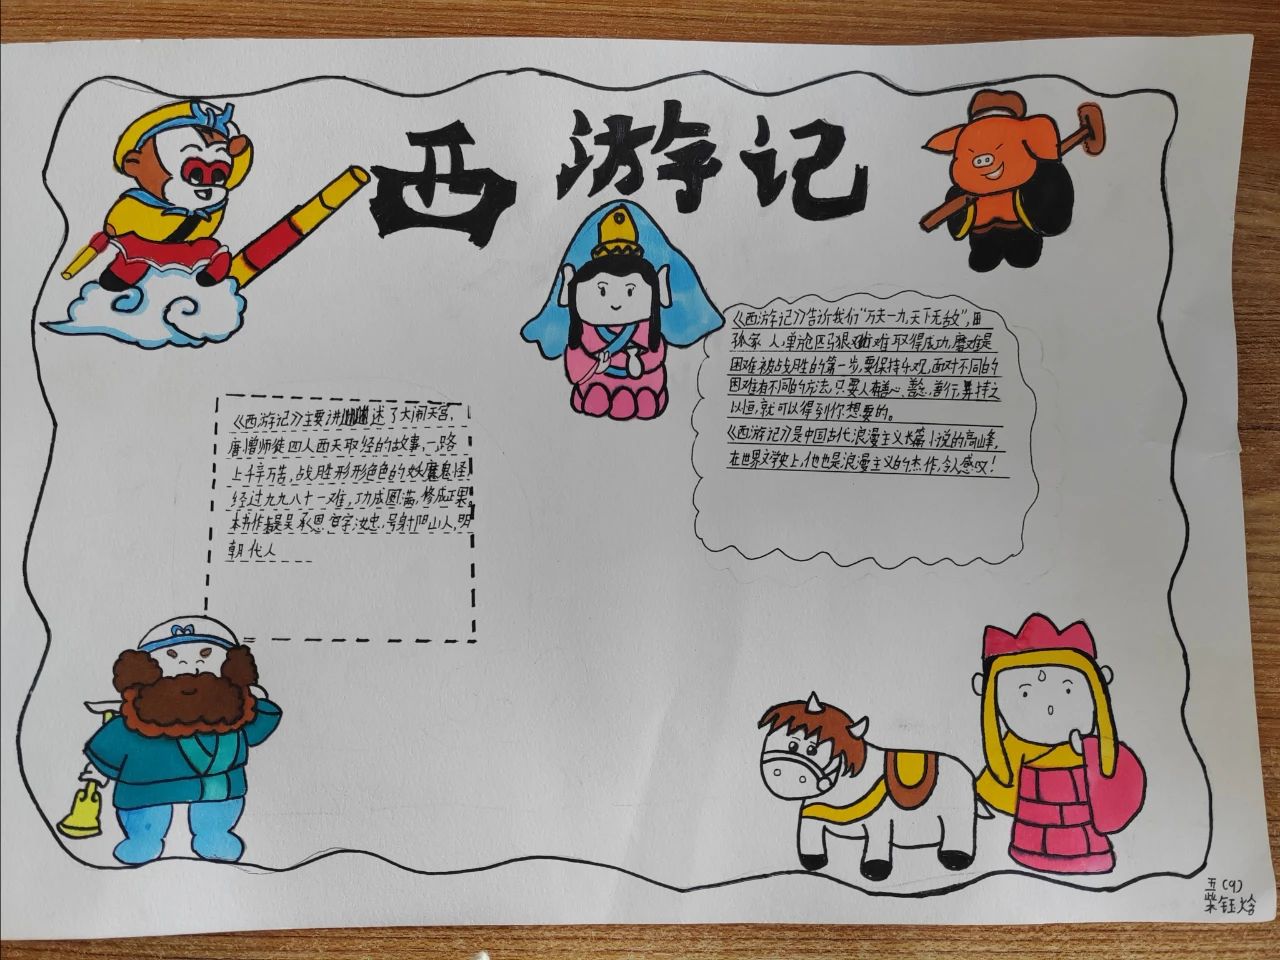 西游记
《西游记》告诉我们"万夫一力,天下无敌",困
张家 人,单枪匹马很难 难取得成功,磨难是
困难被战胜的第一步,要保持乐观,面对不同的
困难有不同的方法,只要人有善心、善念、善行,算持之
以恒,就可以得到你想要的。
《西游记》是中国古代浪漫主义长篇小说的高峰,
在世界文学史上,他也是浪漫主义的杰作,令人感叹!
《西游记》主要讲 述了大闹天宫,
唐僧师徒四人西天取经的故事,一路
上千辛万苦,战胜形形色色的妖魔鬼怪
经过九九八十一难,功成圆满,修成正果。
本书作者是吴承恩 字汝忠,号射阳山人,明
朝代人
五(9)
柴钰